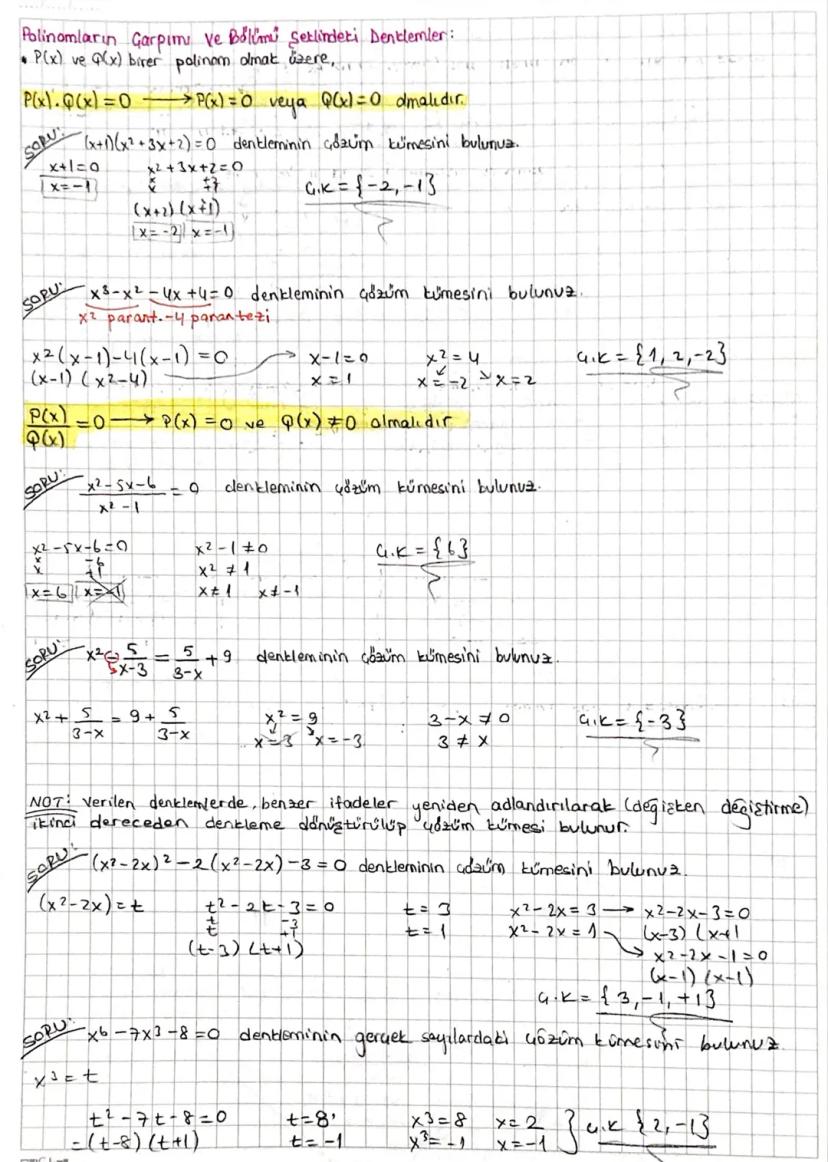 Polinomların Çarpımı ve Bölümü Şeklindeki Denklemler:
• P(x) ve Q(x) birer polinom olmak üzere,
P(x).Q(x) = 0 → P(x) = 0 veya Q(x) = 0 olmalıdır.
SORU: (x+1)(x²+3x+2) = 0 denkleminin çözüm kümesini bulunuz.
x+1=0 x²+3x+2=0
x=-1 x +2
x +1
Ç.K = {-2,-1}
(x+2)(x+1)
x=-2 x=-1
SORU: x³-x²-4x+4=0 denkleminin çözüm kümesini bulunuz.
x² parant. -4 parantezi
x²(x-1)-4(x-1) = 0 → x-1=0 x²=4 Ç.K = {1, 2, -2}
(x-1)(x²-4) x=1 x=-2 x=2
P(x)/Q(x) = 0 → P(x) = 0 ve Q(x) ≠ 0 olmalıdır
SORU: x²-5x-6 / x²-1 = 0 denkleminin çözüm kümesini bulunuz.
x²-5x-6=0 x²-1≠0 Ç.K = {6}
x -6 x²≠1
x +1
x=6 x=-1 x≠1 x≠-1
SORU: x² - 5/x-3 = 5/3-x + 9 denkleminin çözüm kümesini bulunuz.
x² + 5/3-x = 9 + 5/3-x x²=9 3-x≠0 Ç.K = {-3}
x=3 x=-3 3≠x
NOT: Verilen denklemlerde, benzer ifadeler yeniden adlandırılarak (değişken değiştirme)
ikinci dereceden denkleme dönüştürülüp çözüm kümesi bulunur.
SORU: (x²-2x)²-2(x²-2x)-3=0 denkleminin çözüm kümesini bulunuz.
(x²-2x)=t t²-2t-3=0 t=3 x²-2x=3 → x²-2x-3=0
t -3 t=1 x²-2x=1 (x-3)(x+1
t +1 → x²-2x-1=0
(t-3)(t+1) (x-1)(x-1)
Ç.K = {3,-1,+1}
SORU: x⁶-7x³-8=0 denkleminin gerçek sayılardaki çözüm kümesini bulunuz
x³=t
t²-7t-8=0 t=8 x³=8 x=2 } Ç.K {2,-1}
=(t-8)(t+1) t=-1 x³=-1 x=-1